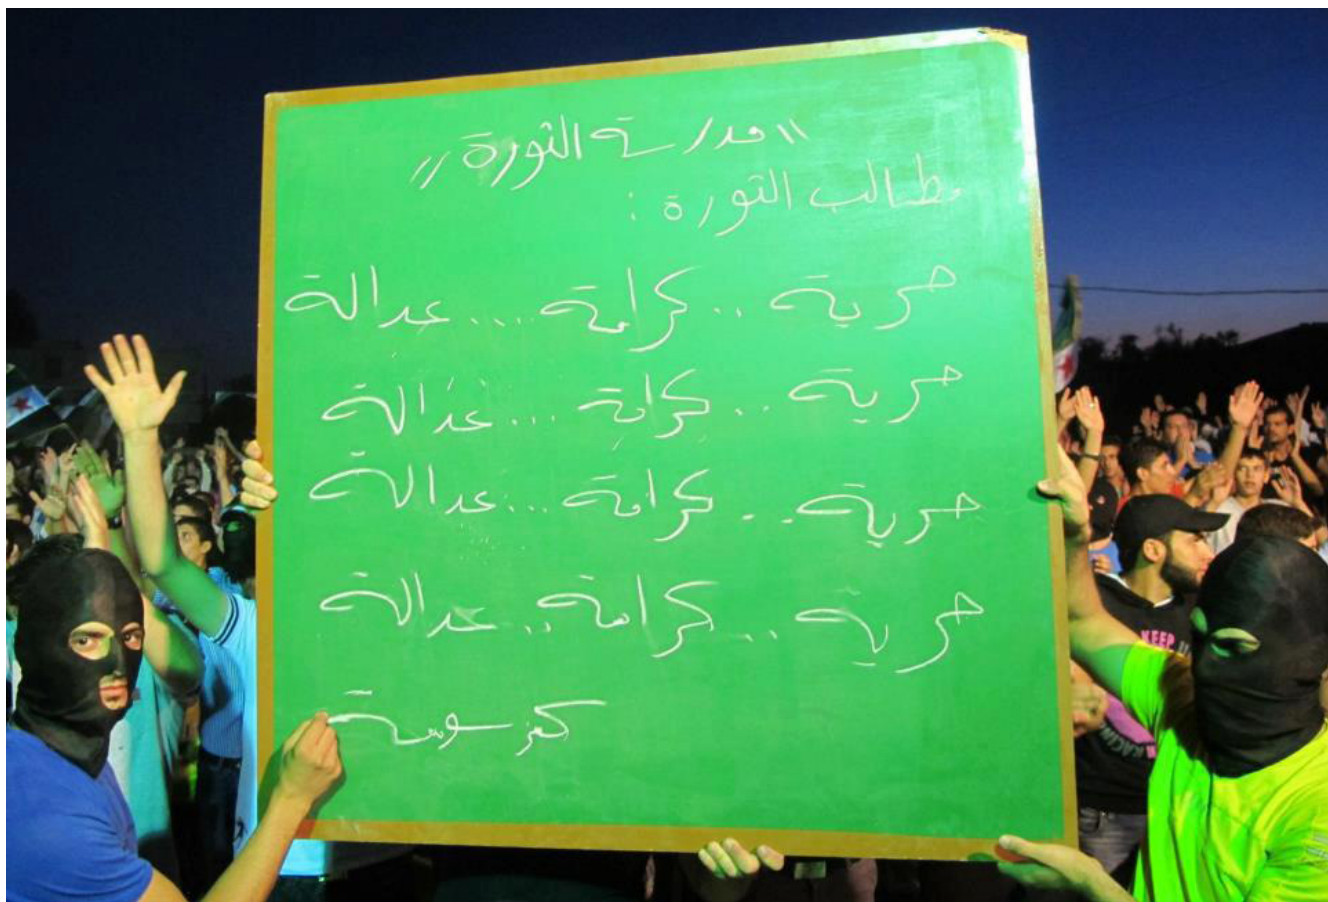 "مدرسة الثورة"
مطالب الثورة :
حرية .. كرامة .... عدالة
حرية .. كرامة ... عدالة
حرية .. كرامة ... عدالة
حرية .. كرامة .. عدالة
KEEP
RACIN